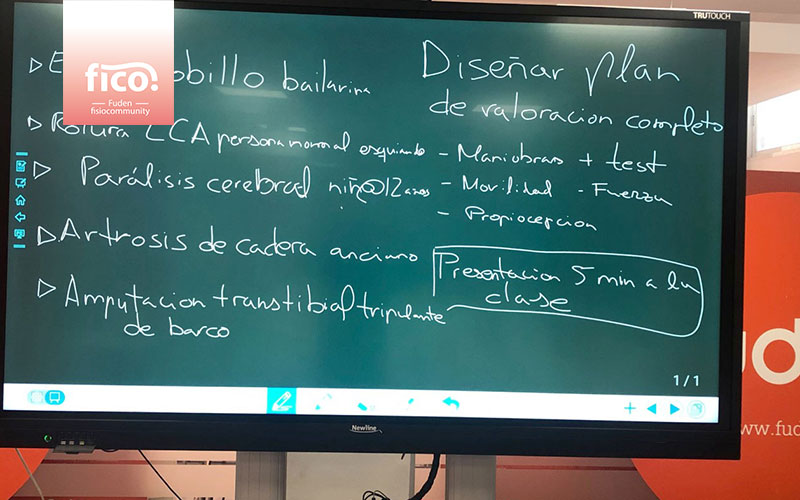 TRUTOUCH
fico.
Fuden
fisiocommunity
obillo bailarina
Rotura LCA persona normal esquiando
Parálisis cerebral niñ@ 12 anos
Artrosis de cadera anciano
Amputacion transtibial tripulante
de barco
Diseñar plan
de valoracion completo
- Maniobras + test
- Movilidad - Fuerza
- Propiocepcion
Presentacion 5 min a la
clase
1/1
Newline
ud
www.fud